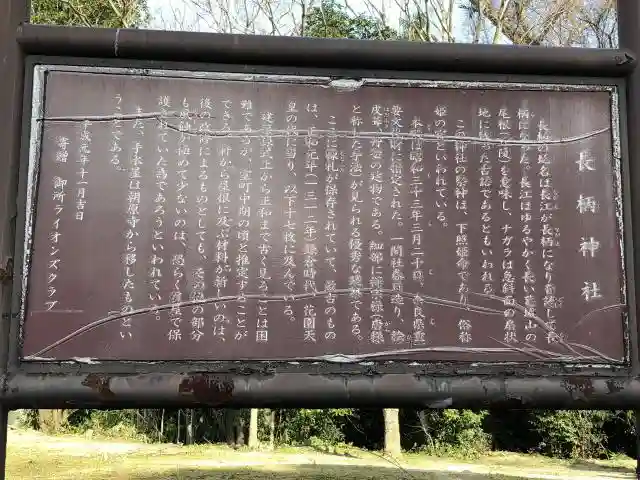 長柄神社
長柄の地名は長江が長柄になり音読して長
柄になった。長江はゆるやかく長い葛城山の
尾根（丘陵）を意味し、ナガラは急斜面の扇状
地に由った古語であるともいわれる。
この神社の祭神は、下照姫命であり、俗称
姫の宮といわれている。
本殿は昭和三十三年三月二十日、奈良県重
要文化財に指定された。一間社春日造り、
檜皮葺、丹塗の建物である。
と称した手法が見られる優秀な建築である。
ここに棟札も保存されていて、最古のもの
は、正和元年（一三一二年）鎌倉時代、花園天
皇の後に当り、以下十七枚に及んでいる。
建築様式上から正和まで古く見ることは困
難であるが、室町中期の頃と推定することが
できる。軒から屋根に及ぶ材料が新しいのは、
後の改修によるものとしても、その他の部分
も風蝕の極めて少ないのは、恐らく覆屋で保
護されていた為であろうといわれている。
また、手水屋は朝原寺から移したものとい
うことである。
平成元年十一月吉日
寄贈 御所ライオンズクラブ